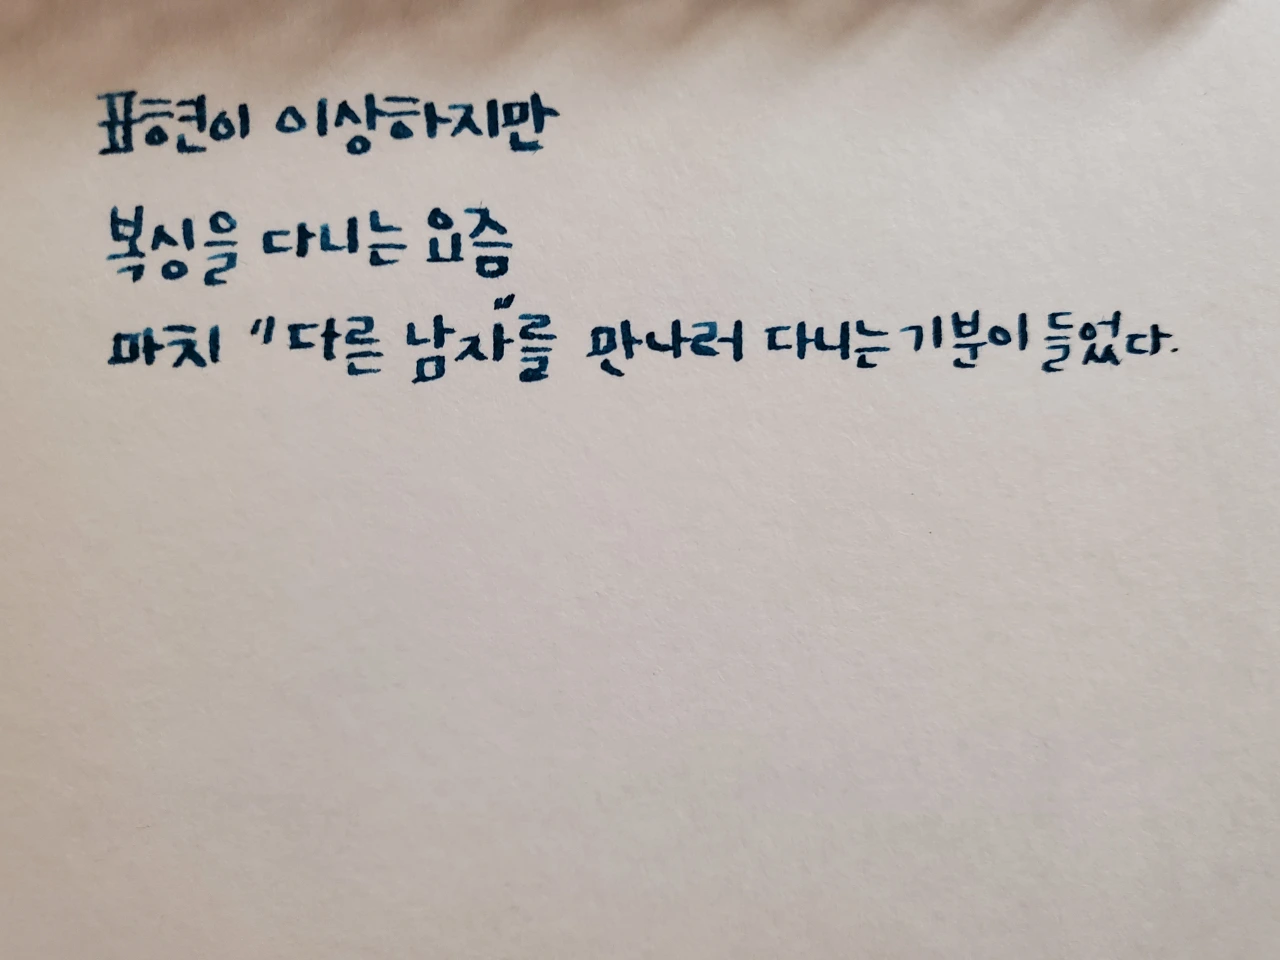 표현이 이상하지만
복싱을 다니는 요즘
마치 "다른 남자"를 만나러 다니는 기분이 들었다.